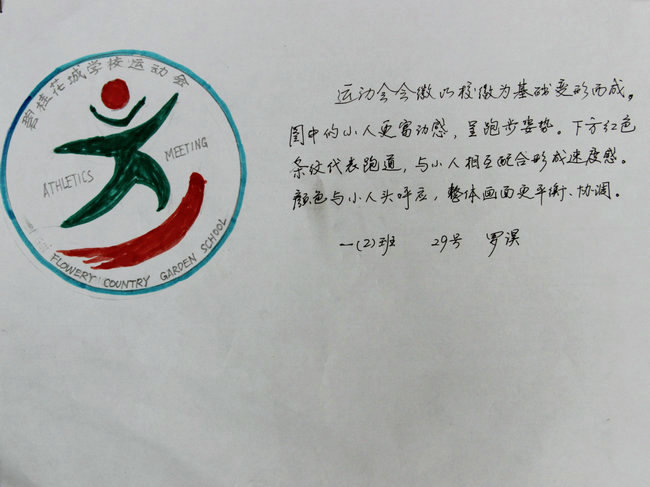 碧桂花城学校运动会
ATHLETICS MEETING
FLOWERY COUNTRY GARDEN SCHOOL
运动会会徽以校徽为基础变形而成。
图中的小人更富动感，呈跑步姿势。下方红色
条纹代表跑道，与小人相互配合形成速度感。
颜色与小人头呼应，整体画面更平衡、协调。
一(2)班 29号 罗淏